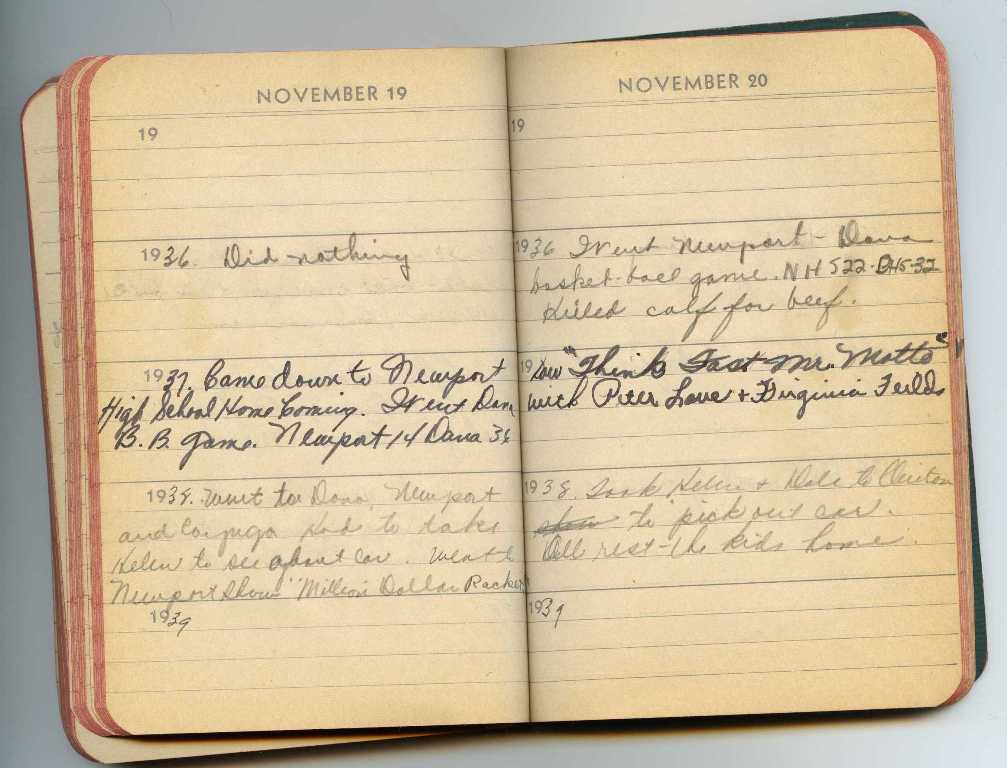 NOVEMBER 19
19
1936. Did nothing
1937. Came down to Newport
High School Home Coming. Went Dana
B. B. game. Newport 14 Dana 38
1938. Went to Dana, Newport
and Cayuga had to take
Helen to see about car. Went to
Newport Show "Million Dollar Racket"
1939
NOVEMBER 20
19
1936 Went Newport - Dana
basket-ball game. NHS 22 - DHS-32
Killed calf for beef.
19 Saw "Think Fast Mr. Motto"
with Peter Lorre + Virginia Feilds
1938. Took Helen + Dale to Clinton
to pick out car.
All rest-the kids home.
1939